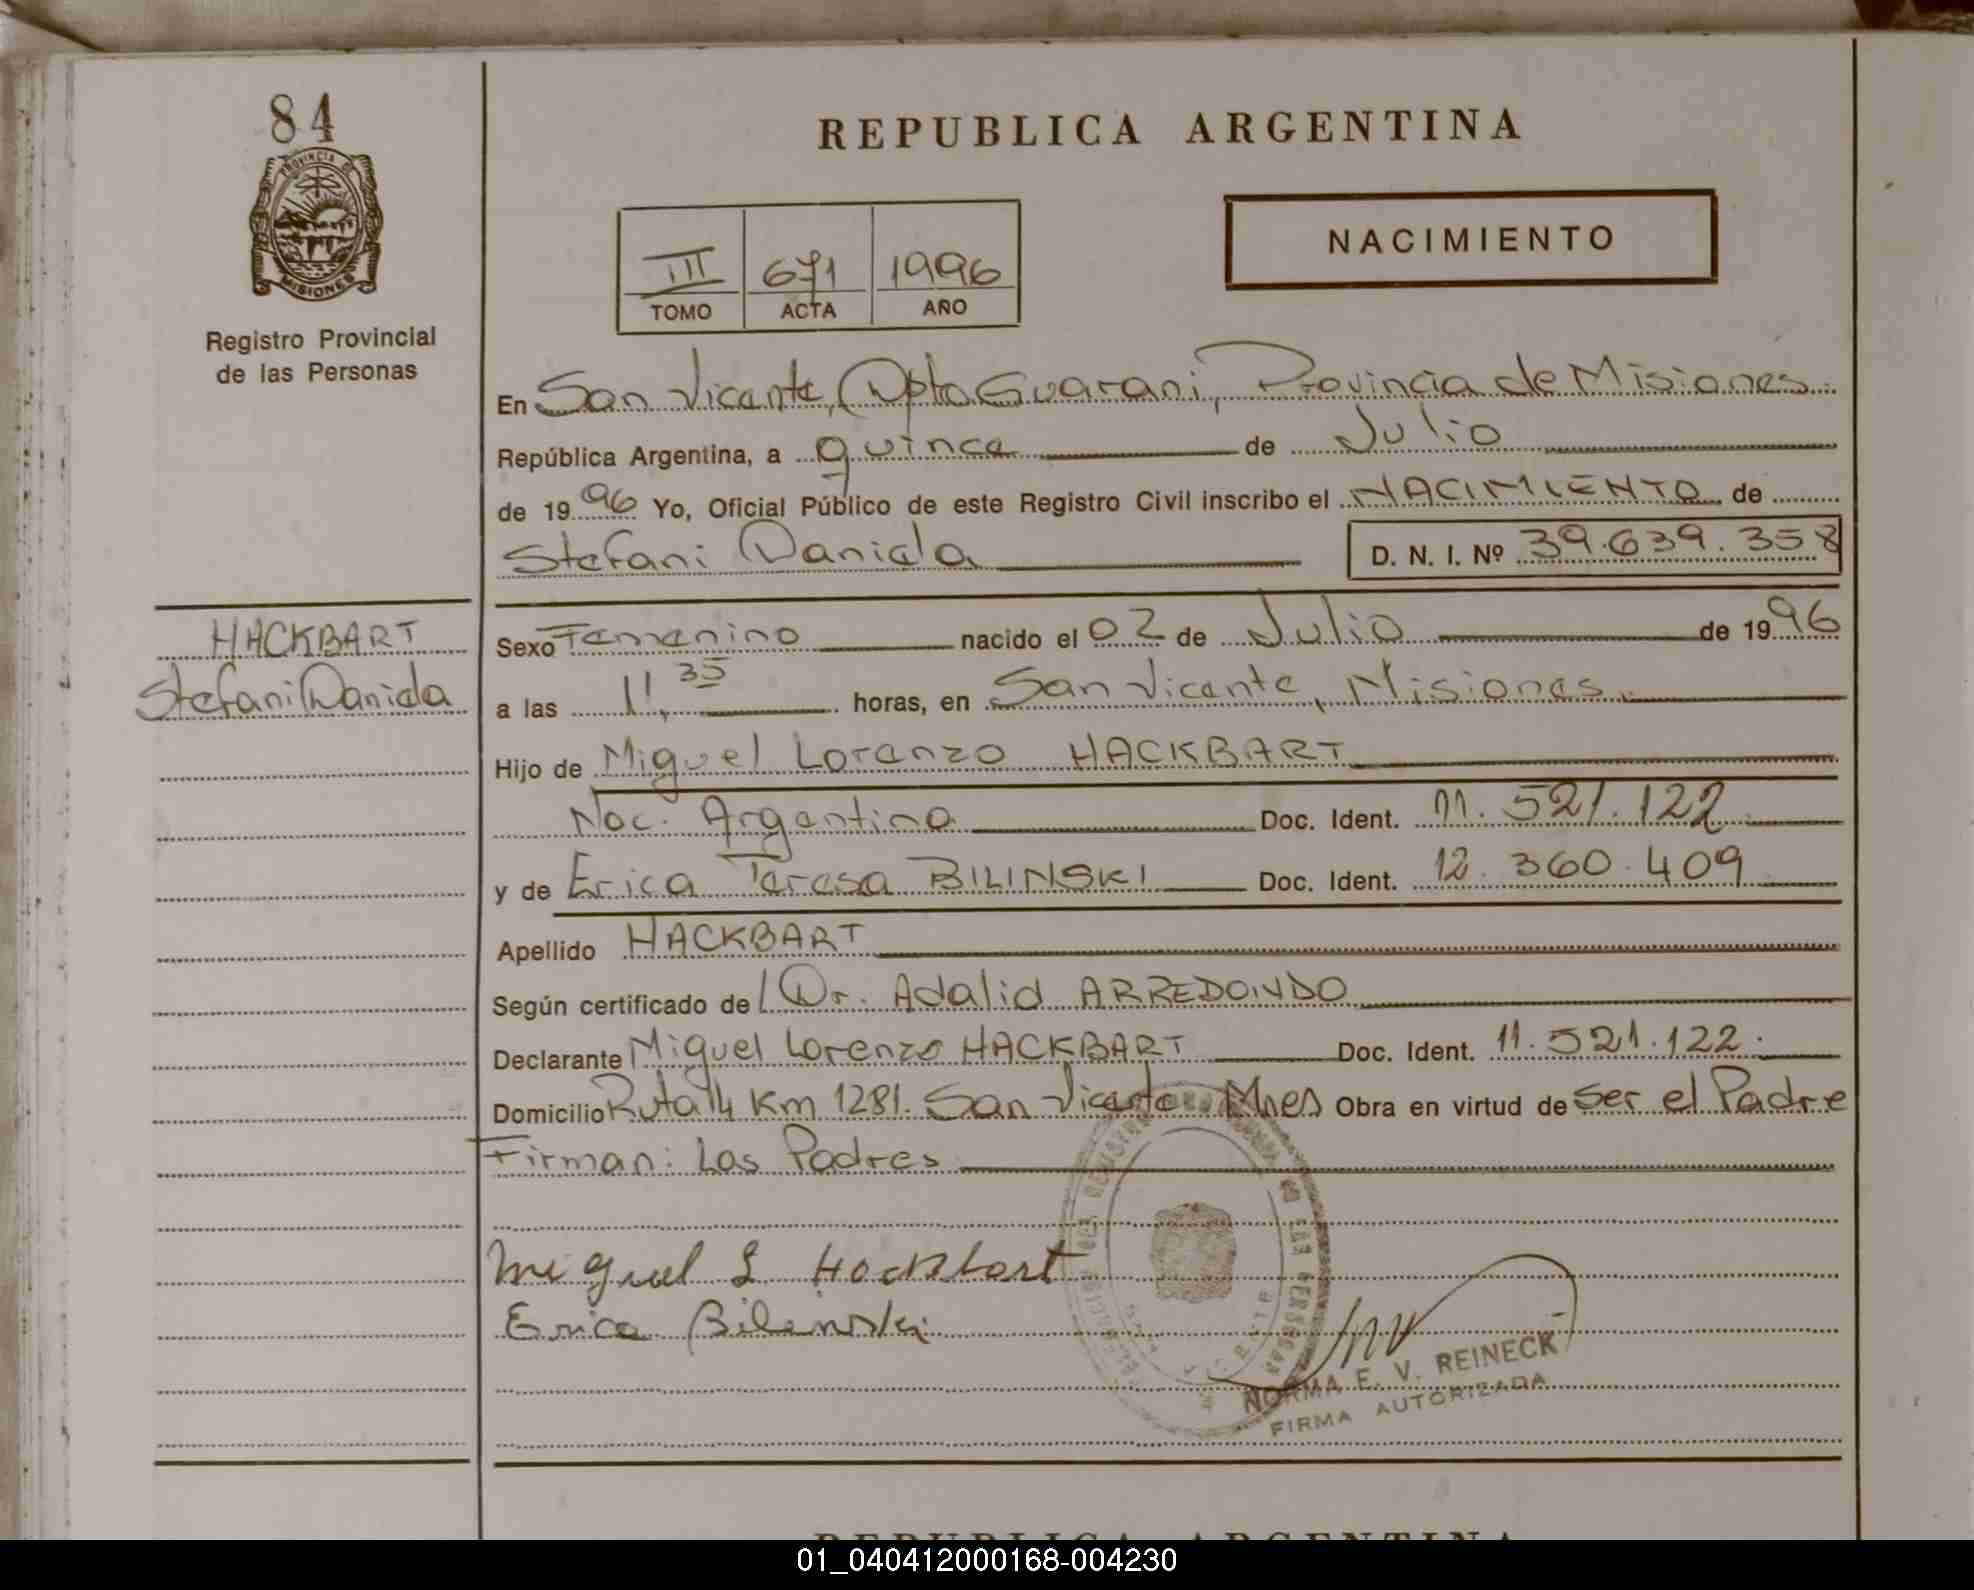 84
PROVINCIA DE
MISIONES
Registro Provincial
de las Personas
REPUBLICA ARGENTINA
NACIMIENTO
III 671 1996
TOMO ACTA AÑO
En San Vicente, Dpto Guarani, Provincia de Misiones
República Argentina, a quince de Julio
de 1996 Yo, Oficial Público de este Registro Civil inscribo el NACIMIENTO de
Stefani Daniela D. N. I. Nº 39.639.358
HACKBART
Stefani Daniela
Sexo Femenino nacido el 02 de Julio de 1996
a las 11,35 horas, en San Vicente, Misiones
Hijo de Miguel Lorenzo HACKBART
Nac. Argentina Doc. Ident. 11.521.122
y de Erica Teresa BILINSKI Doc. Ident. 12.360.409
Apellido HACKBART
Según certificado del Dr. Adalid ARREDONDO
Declarante Miguel Lorenzo HACKBART Doc. Ident. 11.521.122.
Domicilio Ruta 14 Km 1281. San Vicente Mnes Obra en virtud de ser el Padre
Firman: Los Padres
Miguel L Hackbart
Erica Bilinski
NORMA E. V. REINECK
FIRMA AUTORIZADA
REPUBLICA ARGENTINA
01_040412000168-004230